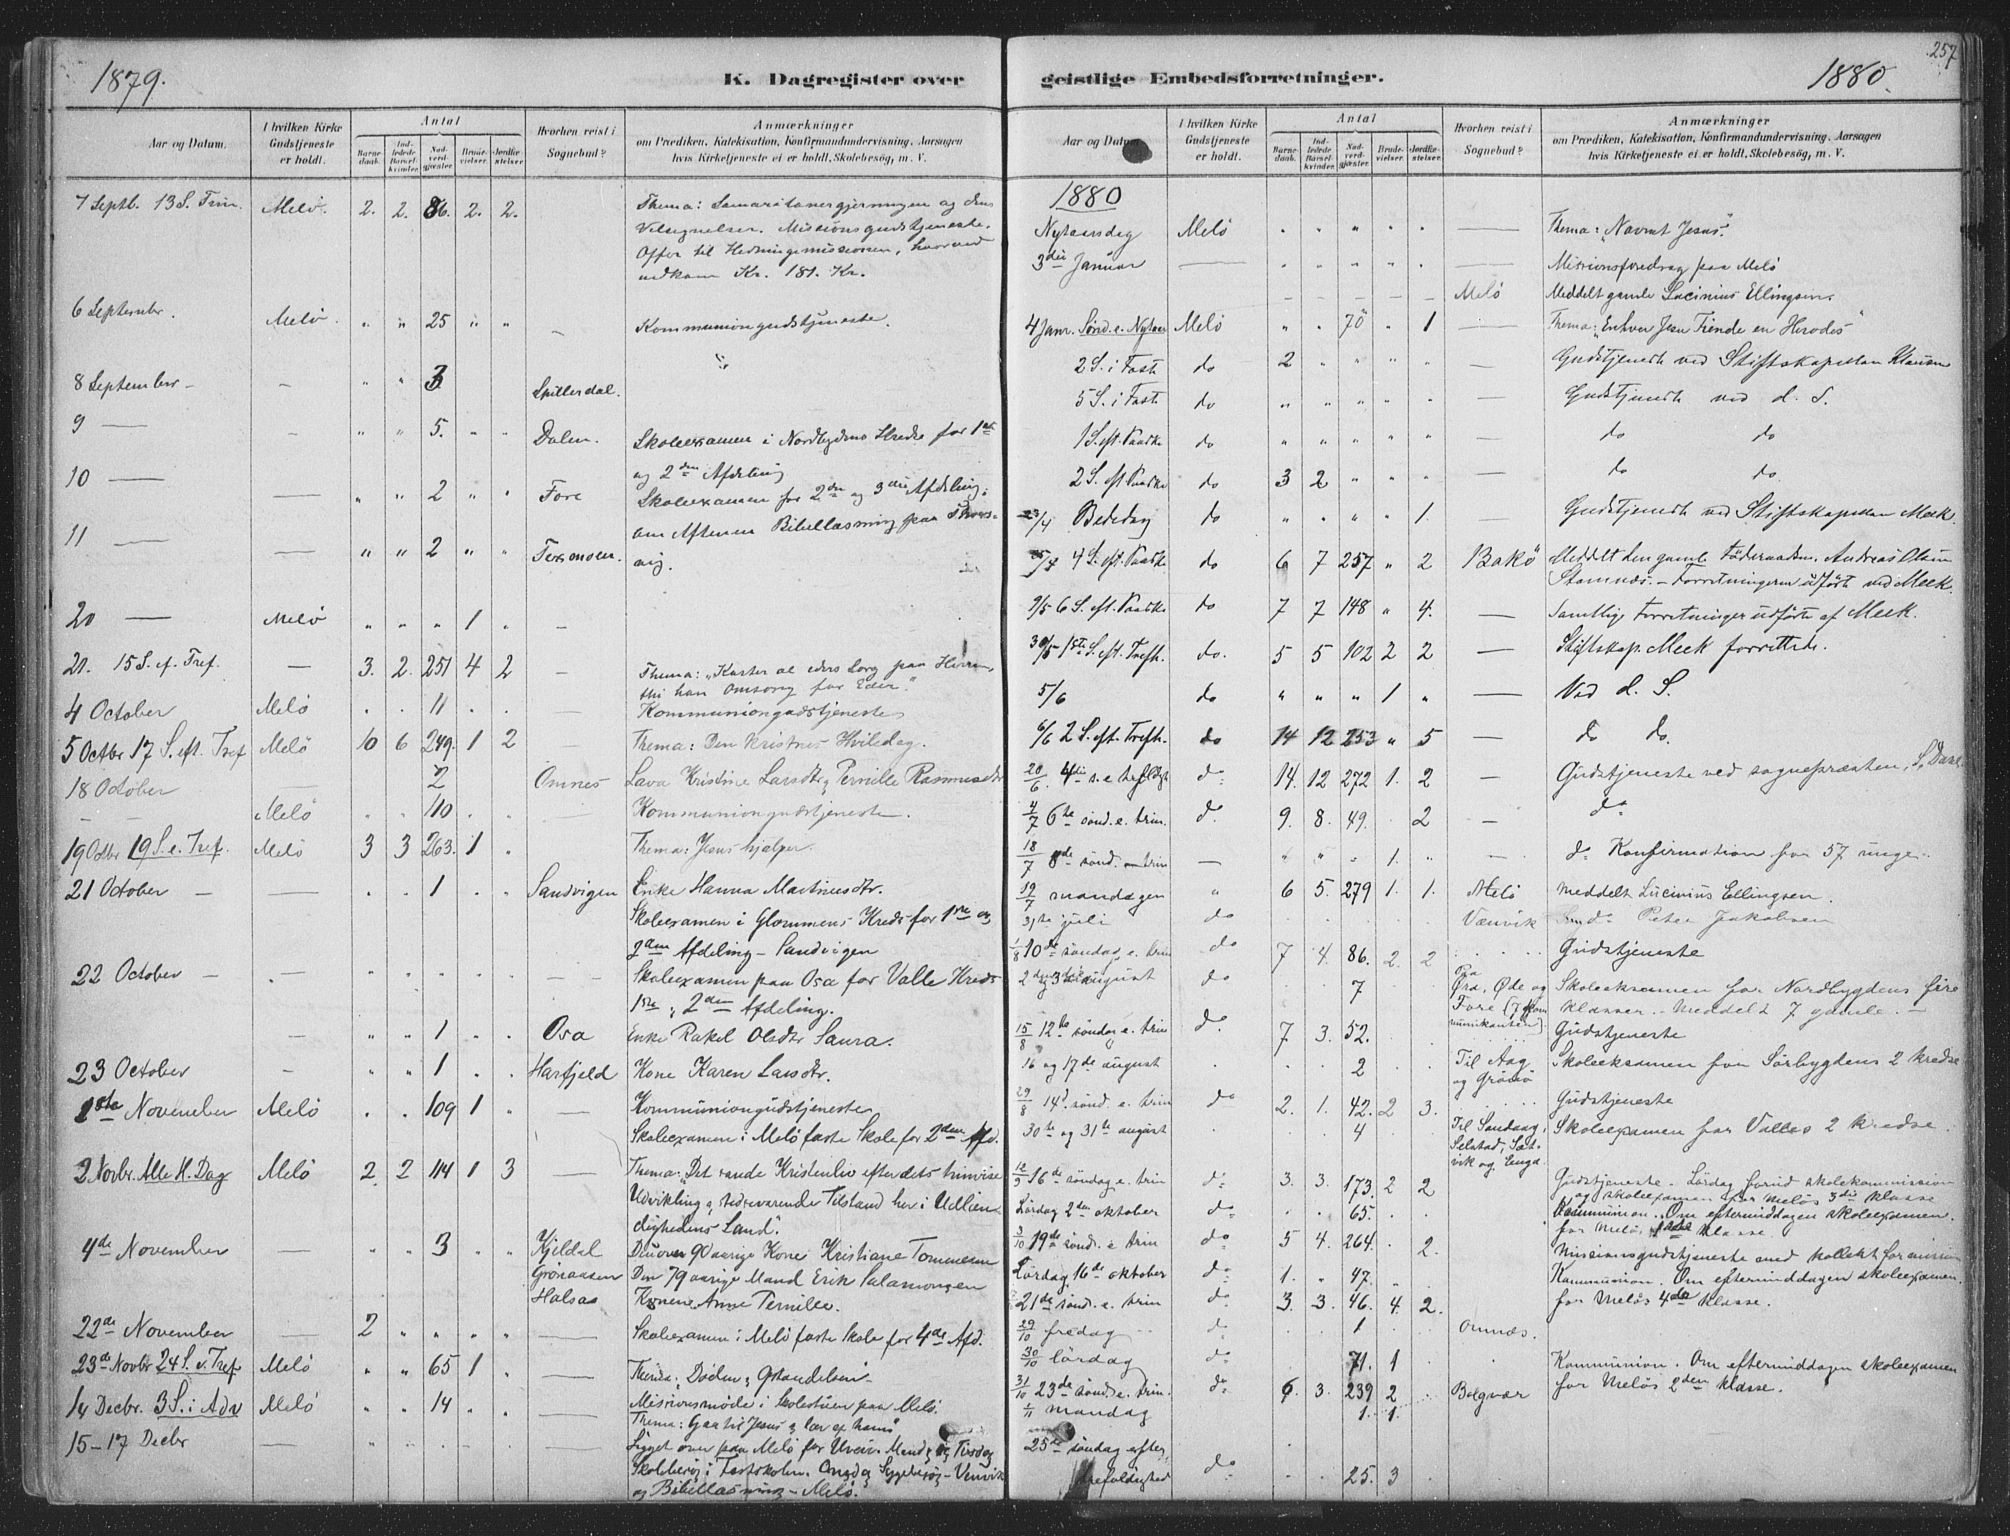 1879.
K. Dagregister over
Aar og Datum.
I hvilken Kirke Gudstjeneste er holdt.
Antal
Barne-daab. Ind-ledede Barsel-kvinder. Nad-verd-gjæster. Brude-vielser. Jordfæ-stelser.
Hvorhen reist i Sognebud?
Anmærkninger
om Prædiken, Katekisation, Konfirmandundervisning, Aarsagen
hvis Kirketjeneste ei er holdt, Skolebesøg, m. V.
7 Septb. 13 S. Trin. Melö. 2. 2. 86. 2. 2. Thema: Samaritanergjerningen og dens
Velsignelser. Missionsgudstjeneste.
Offer til Hedningemissionen, hvorved
indkom Kr. 181. Kr.
6 September. Melö. " " 25 " " – Kommuniongudstjeneste.
8 September – – " " 3 Spillerdal.
9 — – " " 5. " " Dalen. Skoleexamen i Nordbygdens Kreds for 1ste
og 2den Afdeling
10 — — " " 2 " " Fore Skoleexamen for 2den og 3die Afdeling;
om Aftenen Bibellæsning paa
11 — — " " 2 " "
vig.
20 — Melö " " " 1 " –
21. 15 S. ef. Tref. — 3. 2. 251 4 2 – Thema: "Kaster al eders Sorg paa Herren
thi han Omsorg for Eder."
4 October Melö . . 11 . . Kommuniongudstjeneste
5 Octbr 17 S. eft. Tref Melö 10 6 249. 1 2 — Thema: Den Kristnes Hviledag.
18 October — 2 Omnes Lava Kristine Larsdtr, Pernille Rasmusdtr
– – Melö . . 110 . . — Kommuniongudstjeneste.
19 Octbr 19 S. e. Tref. Melö 3 3 263. 1 . Thema: Jesus hjælper.
21 October – — . . 1 . . Sandvigen Enke Hanna Martinusdtr.
Skoleexamen i Glommens Kreds for 1ste og
2den Afdeling – Sandvigen
22 October – – " " " " " – Skoleexamen paa Osa for Valle Kreds
1ste, 2den Afdeling.
– " " 1 . . Osa Enke Rakel Olsdtr Saura.
23 October – " " 1 . . Harfjeld Kone Karen Larsdtr.
1ste November Melö . . 109 1 " — Kommuniongudstjeneste
Skoleexamen i Melö faste Skole for 2den Afd.
2 Novbr. Alle H. Dag Melö 2 2 114 1 3 — Thema: "Det sande Kristenliv efter dets trinvise
Udvikling og tilsvarende Tilstand her i Udlæn-
dighedens Land".
4de November — " " 3 " " Kjeldal Den over 90 aarige Kone Kristiane Tommesen
Grönaasen Den 79 aarige Mand Erik Salamonsen
Halsaa Konen Anne Pernille.
22de November — 2 " " " " — Skoleexamen i Melö faste Skole for 4de Afd.
23de Novbr 24 S. e. Tref Melö " " 65 1 " — Thema: Döden og
14 Decbr. 3 S. i Adv Melö " " 14 " " — Missionsmöde i Skolestuen paa Melö.
Thema: Gaa til Jesus og lær af ham"
15–17 Decbr — Ligget over paa Melö for Uveir. Mandag og Tirsdag
Skolebesög i Fastskolen. Onsdag Sygebesög – Vænvik
og Bibellæsning – Melö.
257
geistlige Embedsforretninger.
1880.
Aar og Datum.
I hvilken Kirke Gudstjeneste er holdt.
Antal
Barne-daab. Ind-ledede Barsel-kvinder. Nad-verd-gjæster. Brude-vielser. Jordfæ-stelser.
Hvorhen reist i Sognebud?
Anmærkninger
om Prædiken, Katekisation, Konfirmandundervisning, Aarsagen
hvis Kirketjeneste ei er holdt, Skolebesøg, m. V.
1880
Nytaarsdag Melö . " " " . — Thema: "Navnet Jesus".
3die Januar — . . " " . — Missionsforedrag paa Melö
– – – – – Melö Meddelt gamle Lucinius Ellingsen.
4 Janr. Sönd. e. Nytaar Melö " " 70 " 1 — Thema: "Enhver Jesu Fiende en Herodes"
2 S. i Faste do 2 " " " . — Gudstjeneste ved Stiftskapellan Klausen
5 S. i Faste do " " " " " — Gudstjeneste ved d. S.
1 S. eft. Paaske do " " " " " — do do
2 S. eft Paaske do 3 2 " " " — do do.
23/4 Bededag do " " " " 1. — Gudstjeneste ved Stiftskapellan Meek.
25/4 4 S. eft. Paaske do 6 7 257 " 2 Bakö Meddelt den gamle Föderaadsm. Andreas Olsen
Stamnes. – Forretningerne udförte ved Meek.
9/5 6 S. eft. Paaske do 7 7 148 " 4. — Samtlige Forretninger udförte af Meek.
30/5 1ste S. eft. Trefh. do. 5 5 102 2 2 — Stiftskap. Meek forrettede.
5/6 do " " " 1 " — Ved d. S.
6/6 2 S. eft. Trefh. do 14 12 253 " 5 — do do.
20/6. 4de s. e. trefoldgh do 14. 12 272 1. 2 – Gudstjeneste ved sognepræsten, S. Dahl.
4/7 6te sönd. e. trin. do 9. 8. 49. . 2 – do
18/7 8de sönd. e. trin — " " . 1. " – do Konfirmation for 57 unge.
19/7 mandagen " 6 5. 279 1. 1. Melö Meddelt Lucinius Ellingsen.
31te juli do . . . . . Vænvik do Peter Jakobsen
1/8 10de söndag e. trin do 7 4. 86. 2. 2 . . . . Gudstjeneste
2den og 3die august do 7 Paa Öra, Öde og Skoleeksamen for Nordbygdens fire
Fore (7 kommunikanter) klasser. – Meddelt 7 gamle. –
15/8 12te söndag e. trin do 7 3. 52. . . Gudstjeneste
16 og 17de august 2 Til Aag og Skoleeksamen for Sörbygdens 2 kredse
29/8 14de sönd. e. trin do 2. 1. 42. 2 3. . . . . Gudstjeneste
30te og 31te august 4 Til Sandaag, Skoleexamen for Valles 2 kredse.
Selstad, Sætvik og Enga
12/9 16de söndag e. trin do 3. 3. 173. 2 2 Gudstjeneste. Lördag forud skolekommission
og skoleexamen for Melös 3die klasse
Lördag 2den oktober do . . 65. . Kommunion. Om eftermiddagen skoleexamen.
for Melös 1ste klasse
3/10 19de sönd. e. trin do 5 4. 264. . 2. Missionsgudstjeneste med kollekt for mission
Lördag 16de oktober do 1. " 47. . . Kommunion. Om eftermiddagen skoleexamen.
21de sönd. e. trin do 3. 3. 46. 4. 2. for Melös 4de klasse.
29/10 fredag do . . 1 Omnæs.
30/10 lördag do 71. 1 . . Kommunion. Om eftermiddagen skoleexamen
31/10 23de sönd. e. trin. do 6. 3. 239 2 . Bolgvær for Melös 2den klasse.
1/11 mandag 1. 1.
25de söndag efter
trefoldighed do . . 25. 3 .